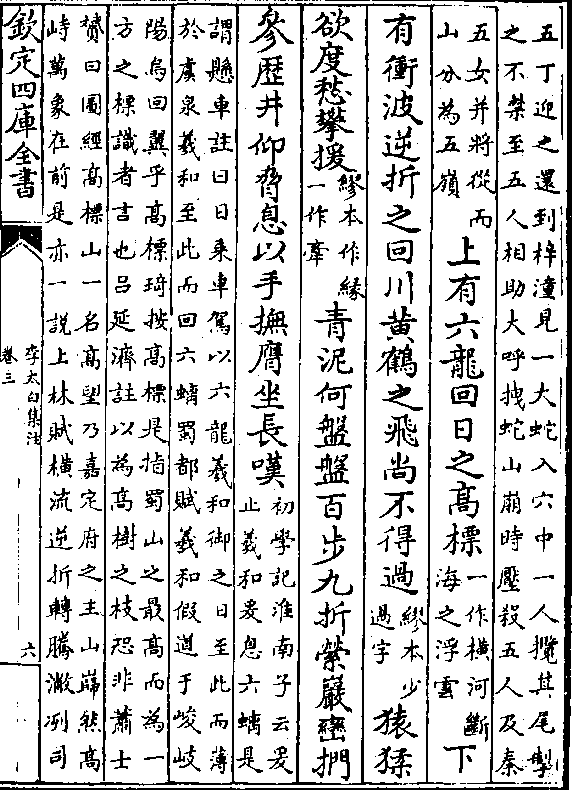 五丁迎之還到梓潼見一大蛇入穴中一人攬其尾掣
之不禁至五人相助大呼拽蛇山崩時壓殺五人及秦
五女并將從而
山分為五嶺
上有六龍回日之高標
一作横河斷
海之浮雲
下
有衝波逆折之回川黄鶴之飛尚不得過
繆本少
過字
猿猱
欲度愁攀援
繆本作緣
一作牽
青泥何盤盤百步九折縈巖巒捫
參歴井仰脅息以手撫膺坐長嘆
初學記淮南子云爰
止羲和爰息六螭是
謂懸車註曰日乗車駕以六龍羲和御之日至此而薄
於虞泉羲和至此而回六螭蜀都賦羲和假道于峻岐
陽烏回翼乎高標琦按高標是指蜀山之最高而為一
方之標識者言也吕延濟註以為高樹之枝恐非蕭士
贇曰圖經高標山一名高望乃嘉定府之主山巋然高
峙萬象在前是亦一説上林賦横流逆折轉騰潎冽司
欽定四庫全書
李太白集注
卷三
六